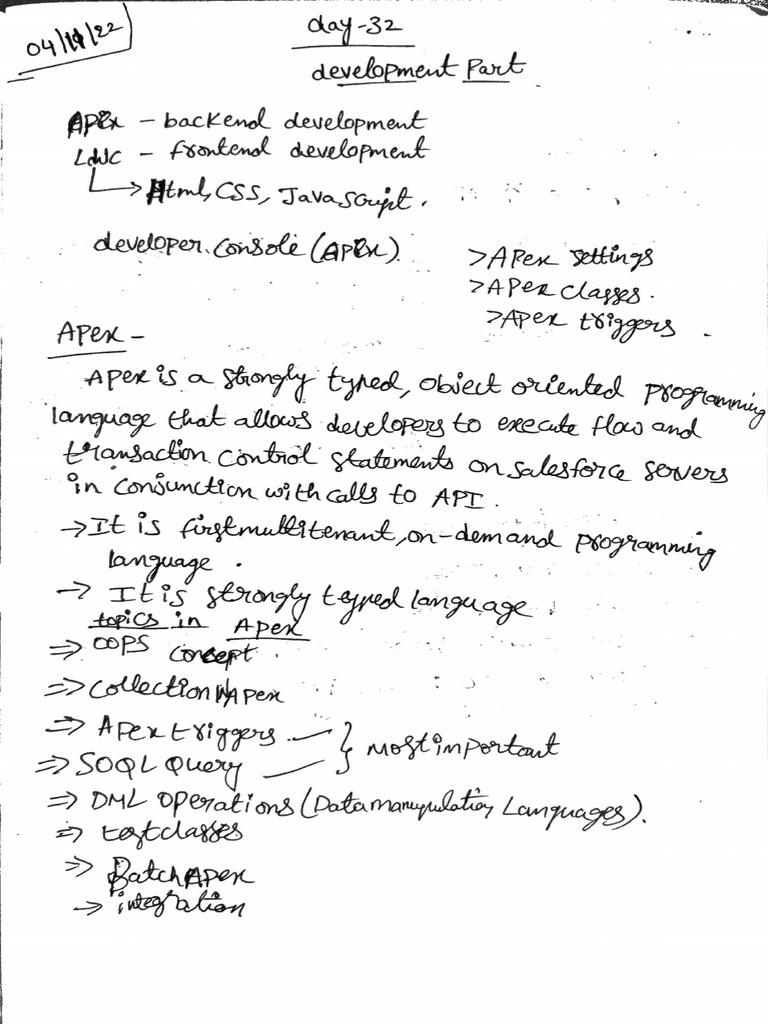 04/11/22
day-32
development Part
APEX - backend development
LWC - frontend development
→ Html, CSS, JavaScript.
developer.console (APEX)
> APex settings
> APex classes.
> APex triggers.
APex -
APex is a strongly typed, object oriented programming
language that allows developers to execute flow and
transaction control statements on salesforce servers
in conjunction with calls to API.
→ It is first multitenant, on-demand programming
language.
→ It is strongly typed language.
topics in APex
⇒ OOPS concept.
⇒ Collection in Apex
⇒ Apex triggers. } most important
⇒ SOQL Query
⇒ DML operations (Data manipulation Languages).
⇒ test classes
⇒ Batch APex
→ integration